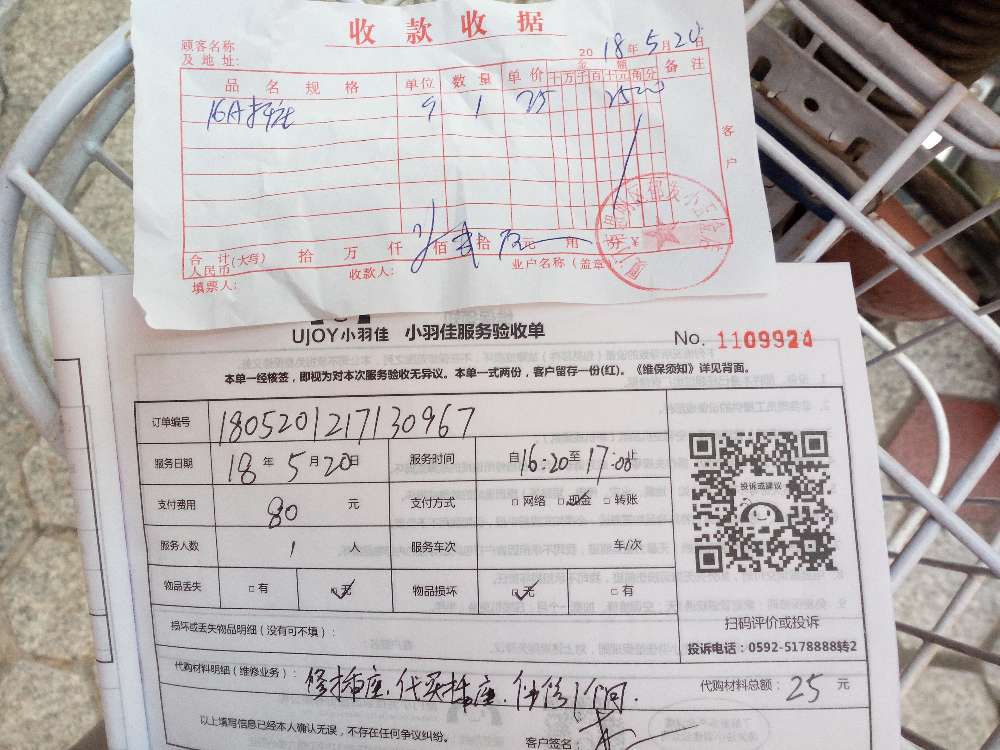 收款收据
顾客名称
及地址:
2018年5月20日
品名规格 单位 数量 单价 金额 备注
十万千百十元角分
16A插座 个 1 25 2500
客户
合计(大写)人民币 拾 万 仟 佰 贰拾 元 角 分 ¥
填票人: 收款人: 业户名称(盖章)
UJOY小羽佳 小羽佳服务验收单 No. 1109924
本单一经核签,即视为对本次服务验收无异议。本单一式两份,客户留存一份(红)。《维保须知》详见背面。
订单编号 180520121713096​7
服务日期 18年5月20日 服务时间 自16:20至17:00止
支付费用 80 元 支付方式 □网络 □现金 □转账
服务人数 1 人 服务车次 车/次
物品丢失 □有 □无 物品损坏 □无 □有
投诉或建议
扫码评价或投诉
投诉电话:0592-5178888转2
损坏或丢失物品明细(没有可不填):
代购材料明细(维修业务): 修插座.代买插座. 代购材料总额: 25 元
以上填写信息已经本人确认无误,不存在任何争议纠纷。
客户签名: